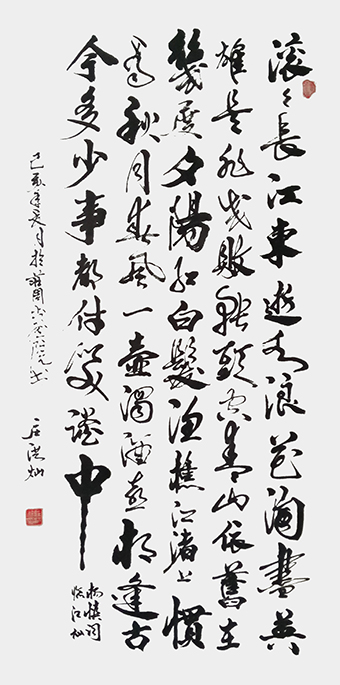 滚々長江東逝水浪花淘盡英
雄是非成敗轉頭空青山依舊在
幾度夕陽紅白髮渔樵江渚上慣
看秋月春風一壺濁酒喜相逢古
今多少事都付笑談中
楊慎詞
临江仙
己亥年夏月於莊周書画院
庄洪灿